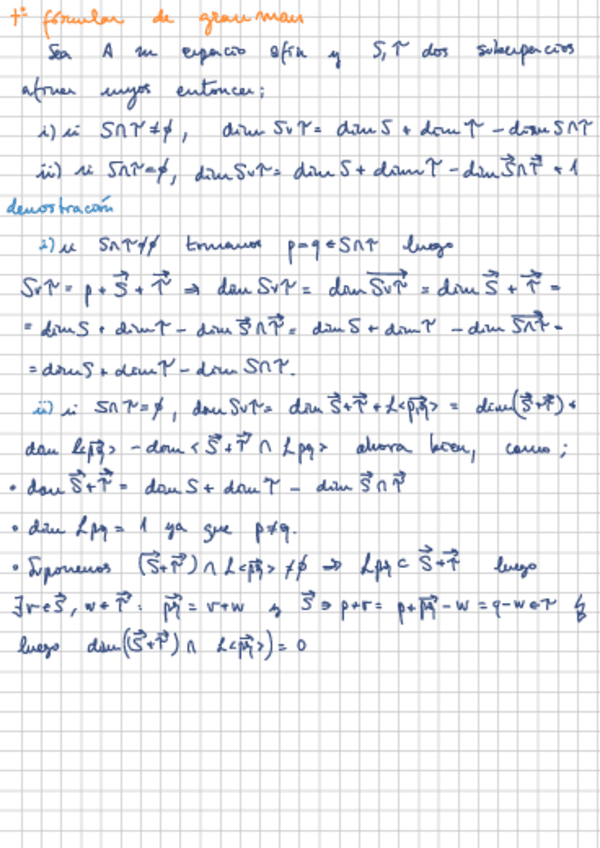 tª fórmulas de grassman
Sea A un espacio afín y S, T dos subespacios
afines suyos entonces;
i) si S∩T≠∅, dim S∨T = dim S + dim T - dim S∩T
ii) si S∩T=∅, dim S∨T = dim S + dim T - dim S⃗∩T⃗ + 1
demostración
i) si S∩T≠∅ tomamos p=q∈S∩T luego
S∨T = p + S⃗ + T⃗ ⇒ dim S∨T = dim S∨T⃗ = dim S⃗ + T⃗ =
= dim S + dim T - dim S⃗∩T⃗ = dim S + dim T - dim S∩T⃗ =
= dim S + dim T - dim S∩T.
ii) si S∩T=∅, dim S∨T = dim S⃗+T⃗ + L<pq⃗> = dim(S⃗+T⃗) +
dim L<pq⃗> - dim <S⃗+T⃗ ∩ L pq> ahora bien, como;
• dim S⃗+T⃗ = dim S + dim T - dim S⃗∩T⃗
• dim L pq = 1 ya que p≠q.
• Suponemos (S⃗+T⃗) ∩ L<pq⃗> ≠∅ ⇒ L pq ⊂ S⃗+T⃗ luego
∃v∈S⃗, w∈T⃗ : pq⃗ = v+w y S⃗ ∋ p+v = p+pq⃗ - w = q-w∈T ↯
luego dim((S⃗+T⃗) ∩ L<pq⃗>) = 0